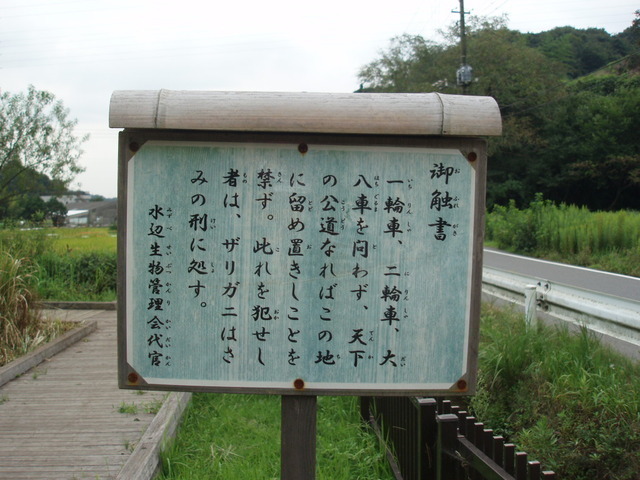 御触書
一輪車、二輪車、大
八車を问わず、天下
の公道なればこの地
に留め置きしことを
禁ず。此れを犯せし
者は、ザリガニはさ
みの刑に処す。
水辺生物管理会代官